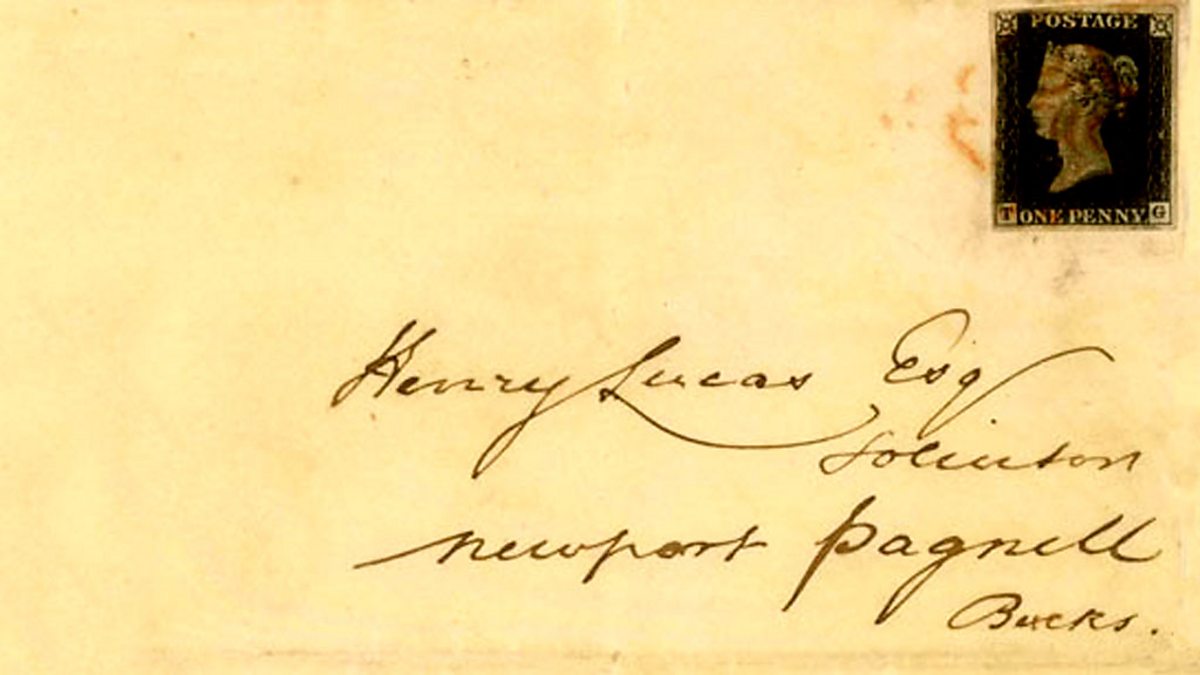 POSTAGE
T ONE PENNY G
Henry Lucas Esq
Solicitor
Newport Pagnell
Bucks.